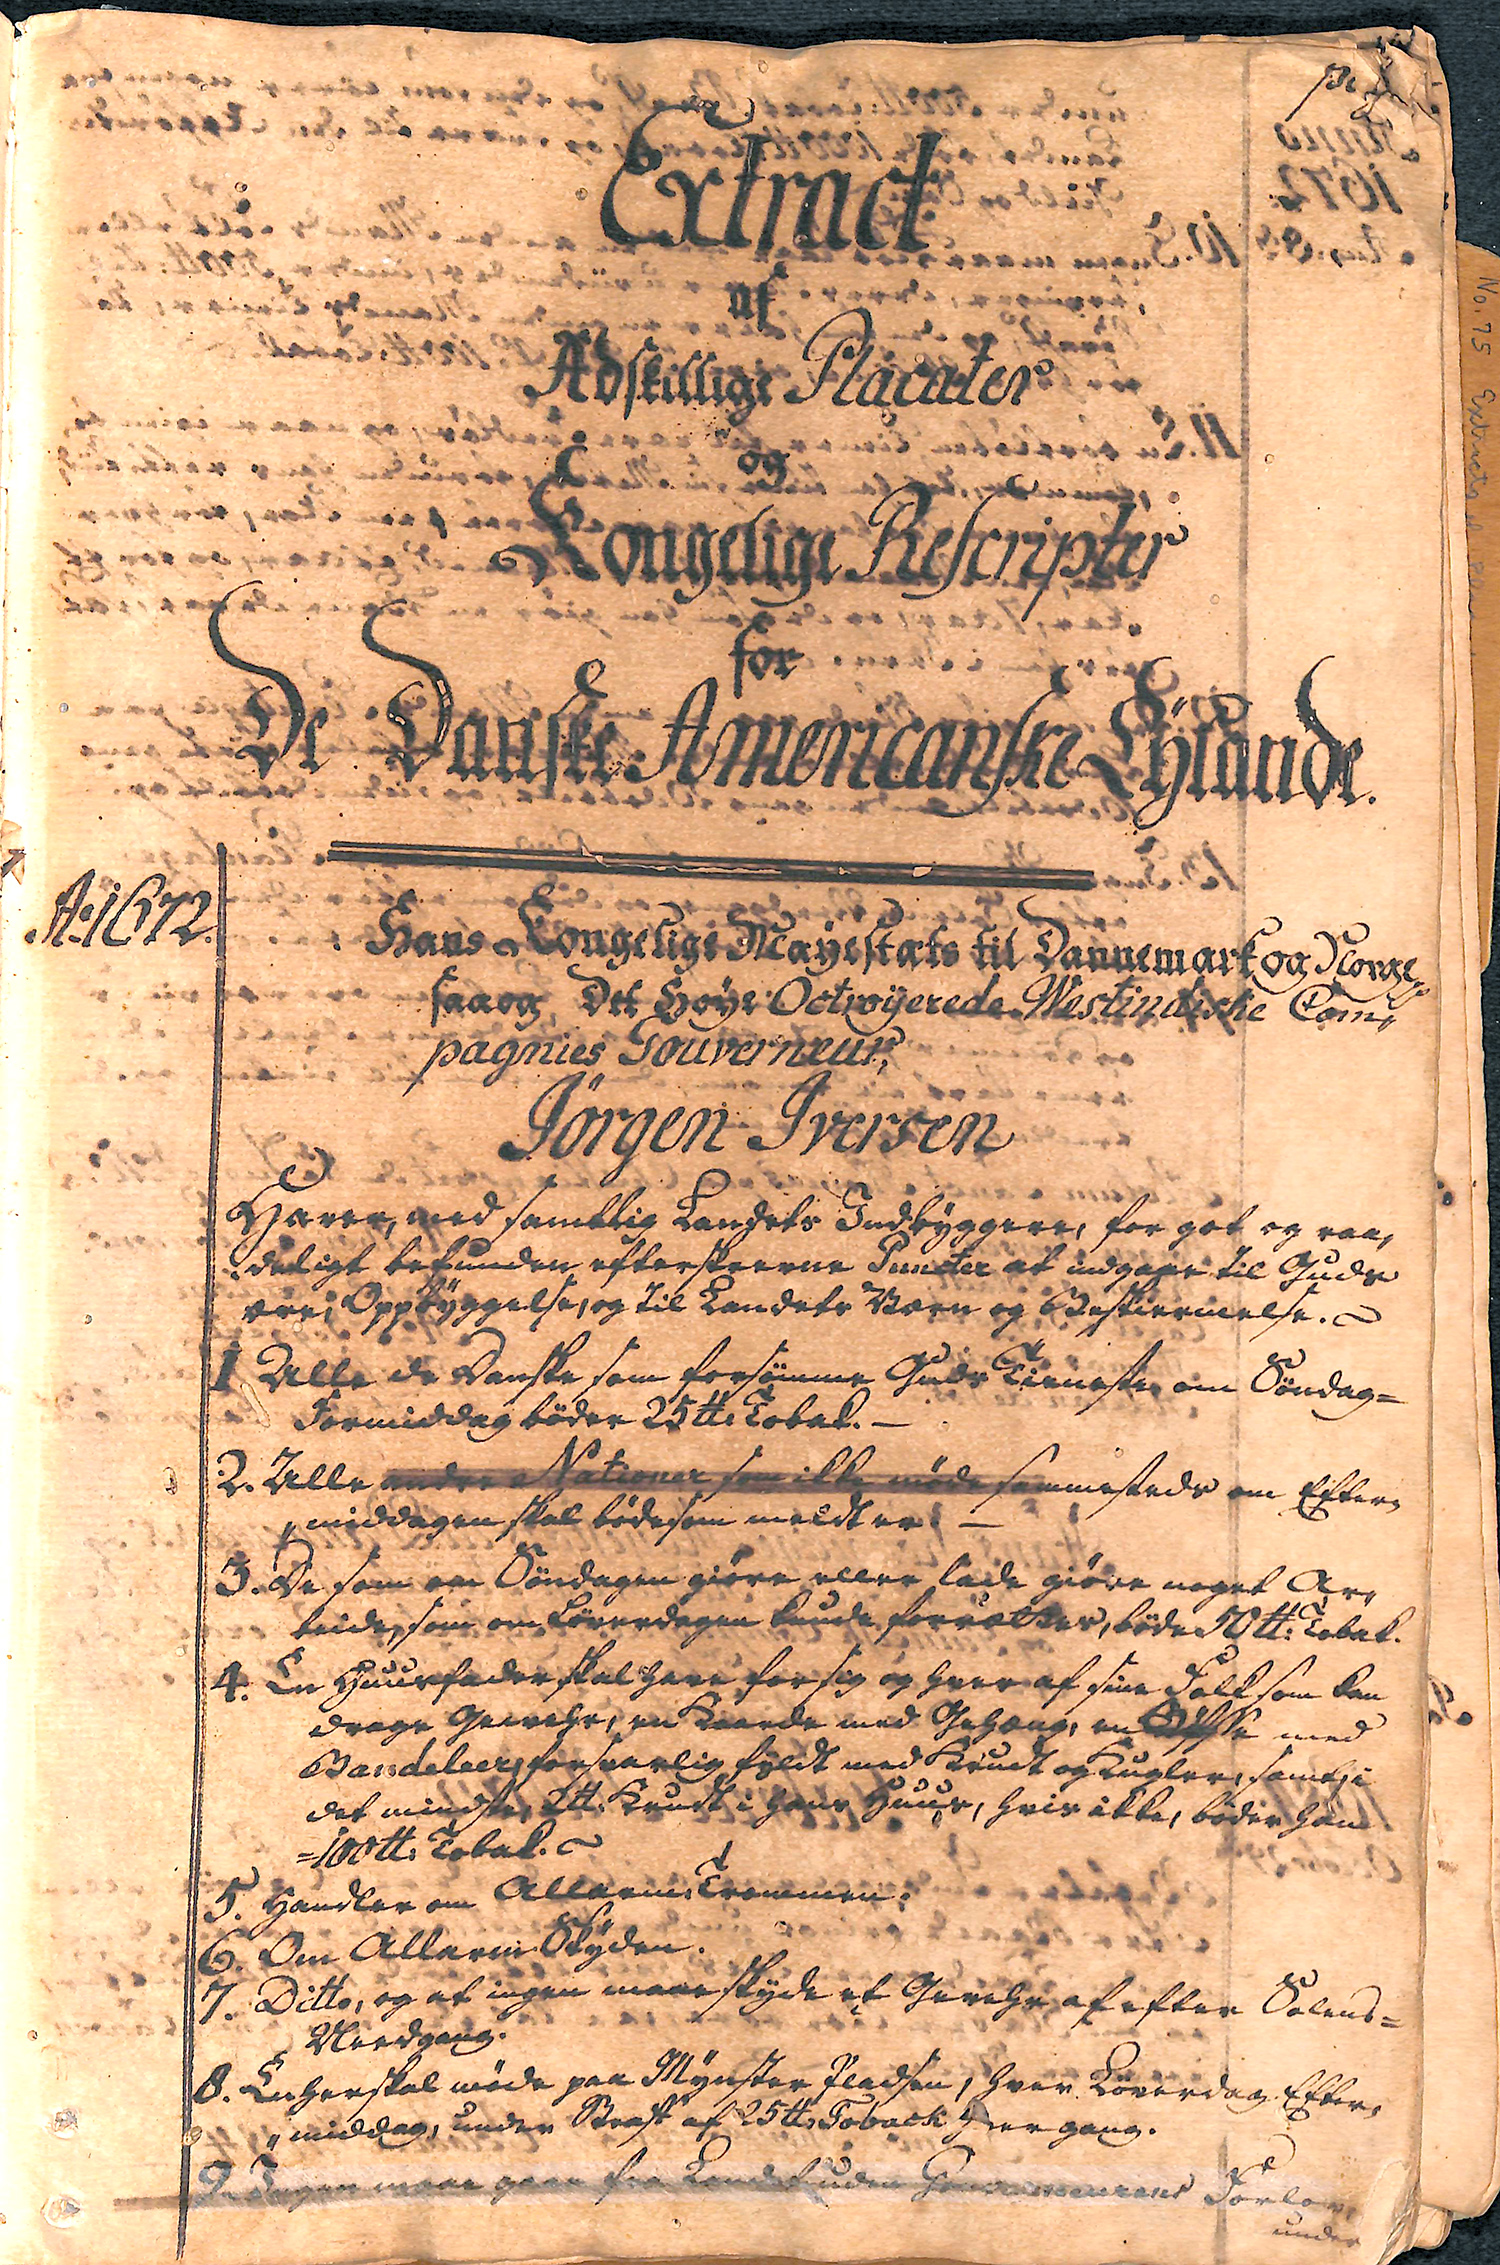 Extract
af
Adskillige Placater
og
Kongelige Rescripter
for
De Danske Americanske Eÿlande.
A: 1672.
Hans Kongelige Mayestæts til Dannemark og Norge
saa og Det Höye Octroyerede Westindiske Com,,
pagnies Gouverneur,
Jörgen Iversen
Haver, med samtlig Landets Indbÿggere, for got og raa,,
deligt befunden efterskrevne Puncter at indgaae til Guds
ære, Opbÿggelse, og til Landets Værn og Beskiermelse.
1 Alle de Danske som forsömme Guds Tieneste om Söndag=
Formiddag böder 25 ℔: Tobak. —
2. Alle andre Nationer som ikke möde sammesteds om Efter,,
middagen skal böde som meldt er. —
3. De som om Söndagen giöre eller lade giöre noget Ar,,
beide, som om Löverdagen kunde forrættes, böde 50 ℔: Tobak.
4. En Huusfader skal have for sig og hver af sine Folk som kan
drage Gevehr, en Kaarde med Gehæng, en Bösse med
Bandeleer, forsvarlig fÿldt med Krudt og Kugler, samt i
det mindste 2 ℔: Krudt i hans Huus, hvis ikke, böder han
=100 ℔: Tobak.
5. Handler om Allarm Trommen.
6. Om Allarm Skÿden.
7. Ditto, og at ingen maae skÿde et Gevehr af efter Solens=
Needgang.
8. Enhver skal möde paa Mÿnster Pladsen, hver Löverdag Efter,,
middag, under Straf af 25 ℔ Toback hver gang.
9. Ingen maae gaae fra Landet uden Gouverneurens Forlov,
under
No. 75 Extracts